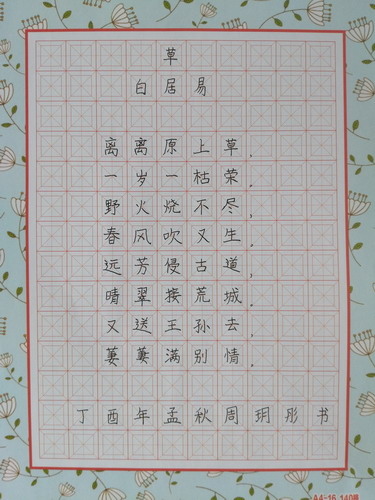 草
白居易
离离原上草，
一岁一枯荣。
野火烧不尽，
春风吹又生。
远芳侵古道，
晴翠接荒城。
又送王孙去，
萋萋满别情。
丁酉年孟秋周玥彤书
A4-16 140格